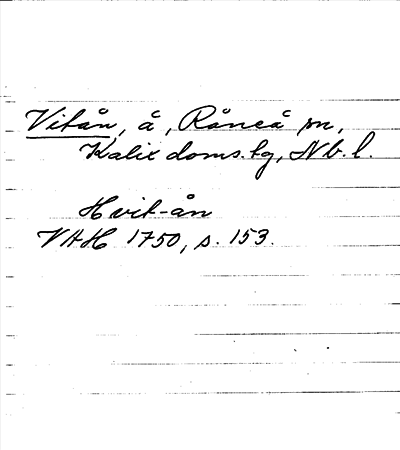 Vitån, å, Råneå sn,
Kalix doms.tg, Nb. l.
Hvit-ån
VAH 1750, s. 153.